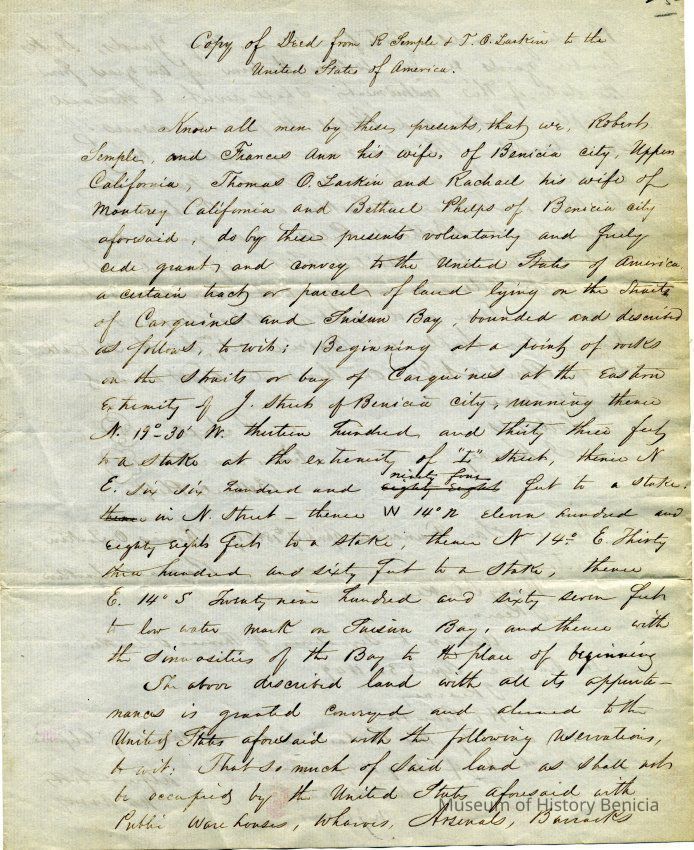 Copy of Deed from R Semple & T. O. Larkin to the
United States of America.
Know all men by these presents, that we, Robert
Semple, and Frances Ann his wife, of Benicia city, Upper
California, Thomas O. Larkin and Rachael his wife of
Monterey California and Bethuel Phelps of Benicia city
aforesaid, do by these presents voluntarily and freely
cede grant, and convey to the United States of America
a certain tract or parcel of land lying on the Straits
of Carquines and Suisun Bay, bounded and described
as follows, to wit: Beginning at a point of rocks
on the straits or bay of Carquines at the Eastern
Extremity of J. Street of Benicia city, running thence
N. 19°-30' W. thirteen hundred and thirty three feet
to a stake at the extremity of "I" Street, thence N
E. six six hundred and eighty eight ninety four feet to a stake.
thence in N. Street - thence W 14° N eleven hundred and
eighty eight feet to a stake, thence N 14° E. Thirty
three hundred and sixty feet to a stake, thence
E. 14° S Twenty nine hundred and sixty seven feet
to low water mark on Suisun Bay, and thence with
the sinuosities of the Bay to the place of beginning
The above described land with all its appurte-
nances is granted conveyed and aliened to the
United States aforesaid with the following reservations,
to wit: That so much of said land as shall not
be occupied by the United States aforesaid with
Public Ware houses, Wharves, Arsenals, Barracks
Museum of History Benicia